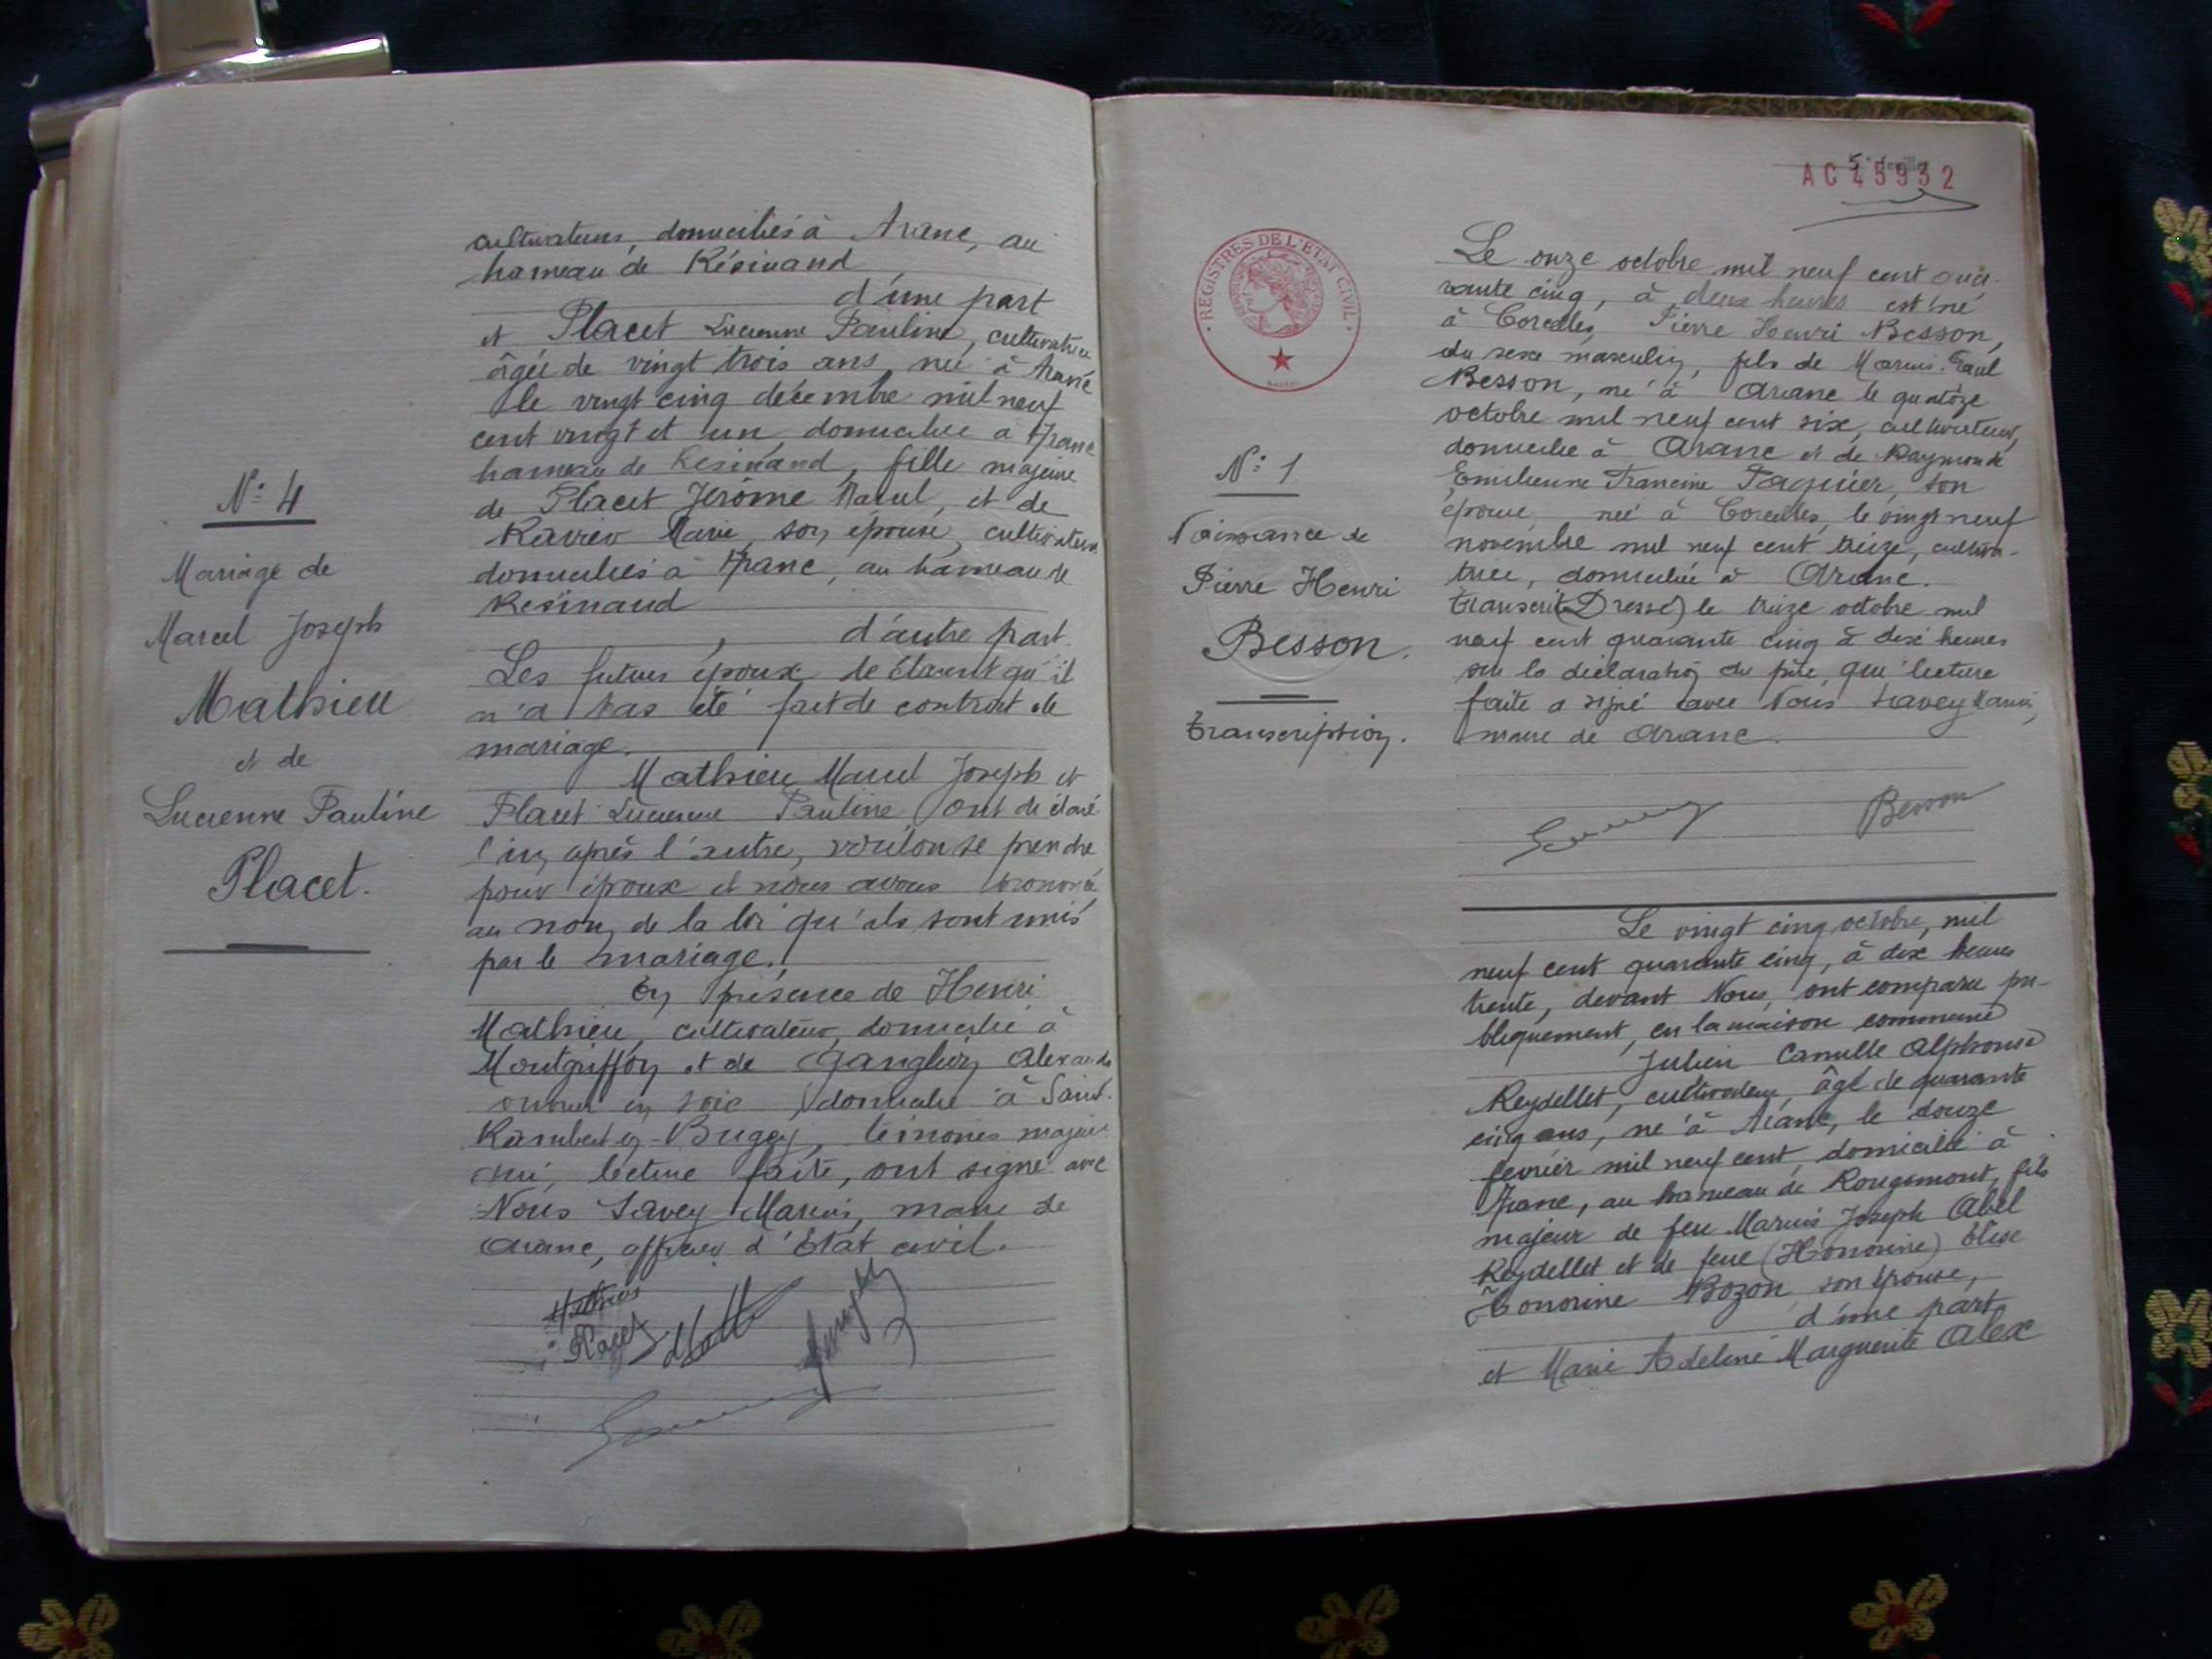 cultivateurs, domiciliés à Aranc, au
hameau de Résinand
d'une part
et Placet Lucienne Pauline, cultivatrice
âgée de vingt trois ans, née à Aranc
le vingt cinq décembre mil neuf
cent vingt et un, domiciliée à Aranc
hameau de Résinand, fille majeure
de Placet Jérôme Raoul, et de
Marie, son épouse, cultivateurs
domiciliés à Aranc, au hameau de
Résinand
d'autre part.
Les futurs époux déclarent qu'il
n'a pas été fait de contrat de
mariage.
Mathieu Marcel Joseph et
Placet Lucienne Pauline ont déclaré
l'un après l'autre, vouloir se prendre
pour époux et nous avons prononcé
au nom de la loi qu'ils sont unis
par le mariage.
En présence de Henri
Mathieu, cultivateur, domicilié à
Montgriffon et de Alexandre
ouvrier en soie, domicilié à Saint-
Rambert-en-Bugey, témoins majeurs
qui, lecture faite, ont signé avec
Nous Savey Marius, maire de
Aranc, officier d'Etat civil.
N° 4
Mariage de
Marcel Joseph
Mathieu
et de
Lucienne Pauline
Placet.
Placet
AC 45932
REGISTRES DE L'ETAT CIVIL
N° 1
Naissance de
Pierre Henri
Besson.
transcription.
Le onze octobre mil neuf cent qua-
rante cinq, à deux heures est né
à Corcelles, Pierre Henri Besson,
du sexe masculin, fils de Marius Paul
Besson, né à Aranc le quatorze
octobre mil neuf cent six, cultivateur,
domicilié à Aranc et de Raymonde
Emilienne Francine son
épouse, née à Corcelles, le vingt neuf
novembre mil neuf cent treize, cultiva-
trice, domiciliée à Aranc.
transcrit (Dressé) le treize octobre mil
neuf cent quarante cinq à dix heures
sur la déclaration du père, qui lecture
faite a signé avec Nous Savey Marius,
maire de Aranc.
Besson
Le vingt cinq octobre, mil
neuf cent quarante cinq, à dix heures
trente, devant Nous, ont comparu pu-
bliquement, en la maison commune
Julien Camille Alphonse
Reydellet, cultivateur, âgé de quarante
cinq ans, né à Aranc, le douze
février mil neuf cent, domicilié à
Aranc, au hameau de Rougemont, fils
majeur de feu Marius Joseph Abel
Reydellet et de feue (Honorine) Elise
Honorine Bozon, son épouse,
d'une part
et Marie Adeline Marguerite Alex